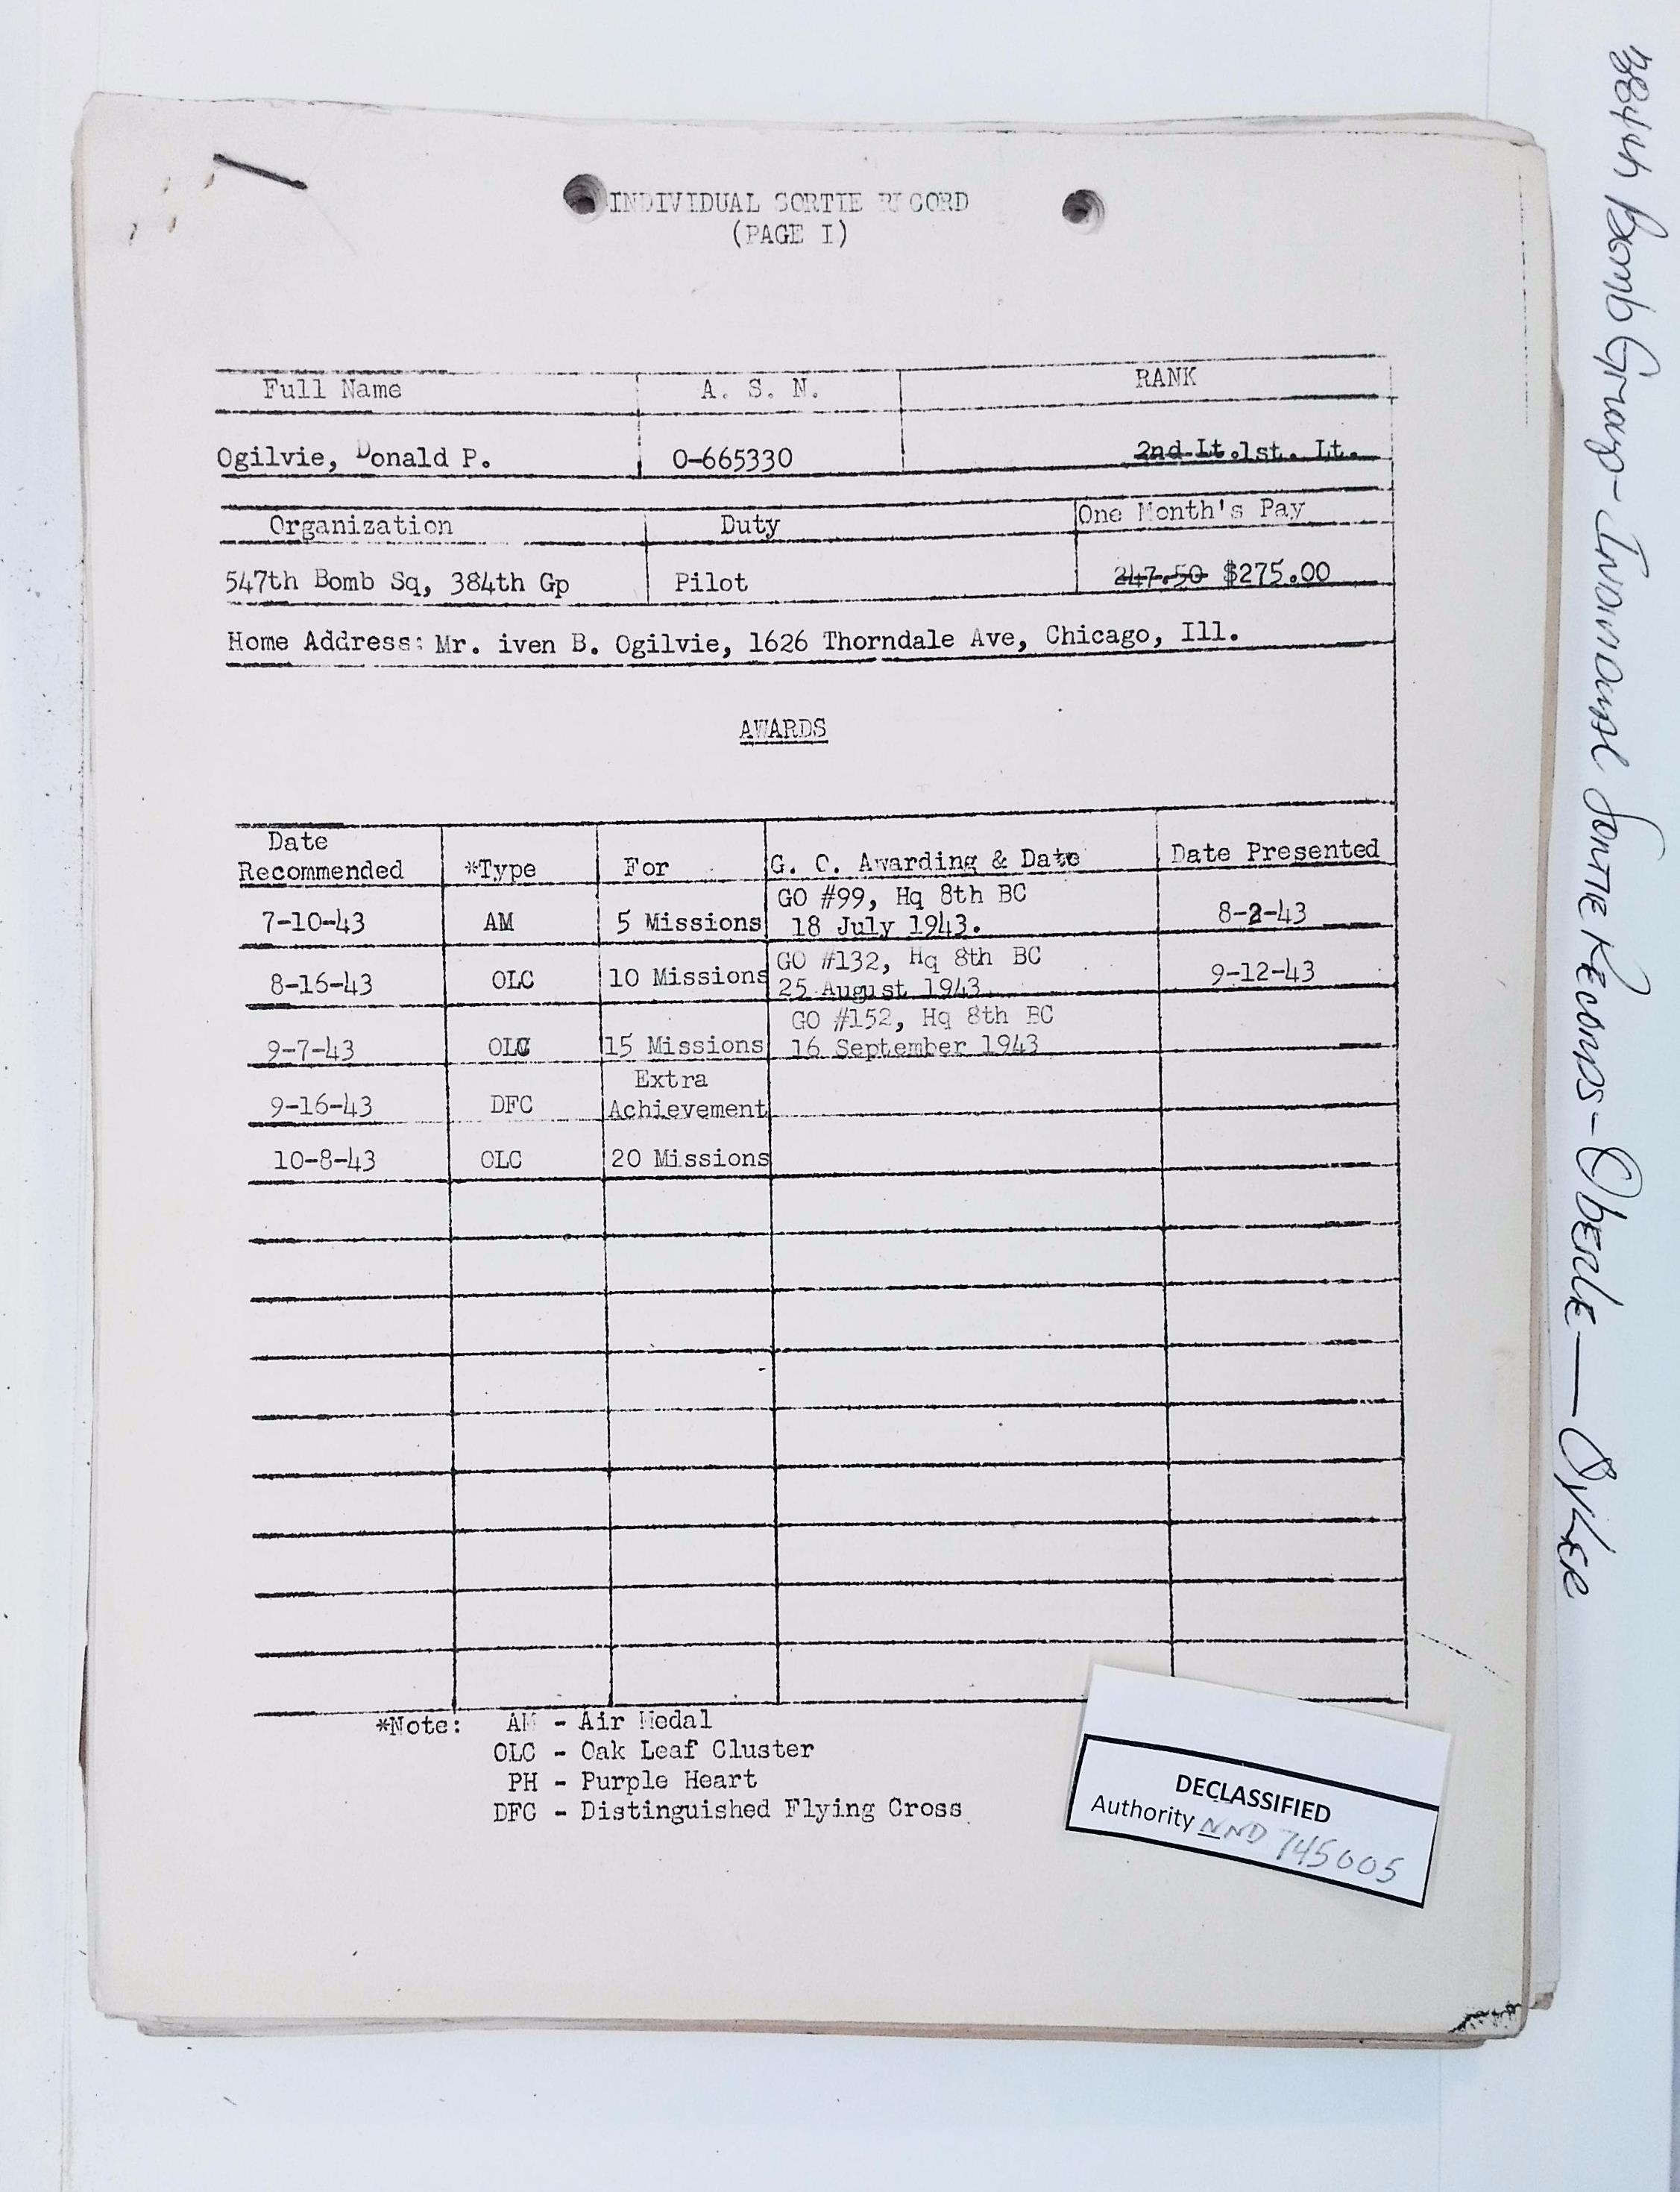 INDIVIDUAL SORTIE RECORD
(PAGE I)
Full Name A. S. N. RANK
Ogilvie, Donald P. O-665330 2nd Lt.1st. Lt.
Organization Duty One Month's Pay
547th Bomb Sq, 384th Gp Pilot 247.50 $275.00
Home Address: Mr. iven B. Ogilvie, 1626 Thorndale Ave, Chicago, Ill.
AWARDS
Date
Recommended *Type For G. O. Awarding & Date Date Presented
GO #99, Hq 8th BC
7-10-43 AM 5 Missions 18 July 1943. 8-2-43
GO #132, Hq 8th BC
8-16-43 OLC 10 Missions 25 August 1943 9-12-43
GO #152, Hq 8th BC
9-7-43 OLC 15 Missions 16 September 1943
Extra
9-16-43 DFC Achievement
10-8-43 OLC 20 Missions
*Note: AM - Air Medal
OLC - Oak Leaf Cluster
PH - Purple Heart
DFC - Distinguished Flying Cross
DECLASSIFIED
Authority NND 745005
384th Bomb Group - Individual Sortie Records - Oberle — Oyler